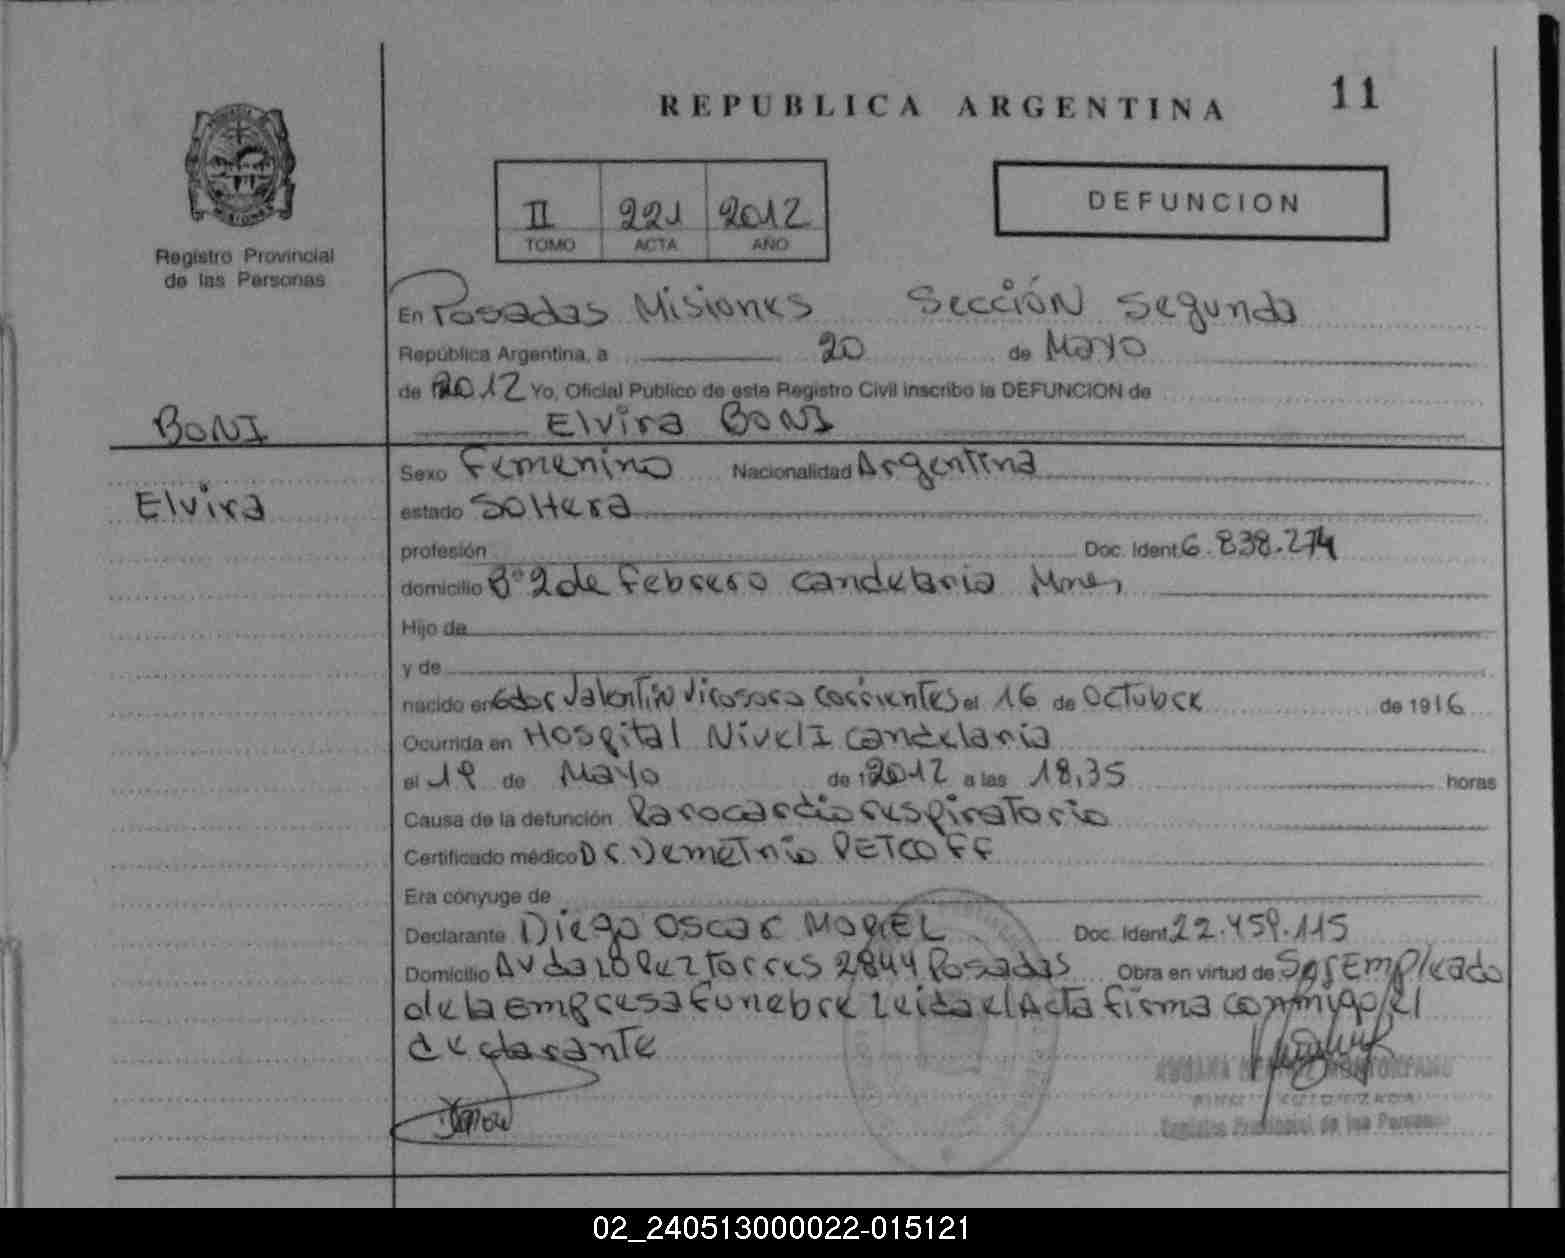 REPUBLICA ARGENTINA
11
MISIONES
Registro Provincial
de las Personas
II 221 2012
TOMO ACTA AÑO
DEFUNCION
En Posadas Misiones Sección Segunda
República Argentina, a 20 de Mayo
de 2012 Yo, Oficial Público de este Registro Civil inscribo la DEFUNCION de
BONI
Elvira BONI
Sexo Femenino Nacionalidad Argentina
Elvira
estado Soltera
profesión Doc. Ident. 6.838.274
domicilio B° 2 de Febrero Candelaria Mnes
Hijo de
y de
nacido en Gdor Valentin Virasoro Corrientes el 16 de Octubre de 1916
Ocurrida en Hospital Nivel I Candelaria
el 19 de Mayo de 2012 a las 18,35 horas
Causa de la defunción Parocardiorespiratorio
Certificado médico Dr Demetrio PETCOFF
Era cónyuge de
Declarante Diego Oscar MOREL Doc. Ident. 22.459.115
Domicilio Avda Lopez Torres 2844 Posadas Obra en virtud de Ser Empleado
de la Empresa funebre Leida el Acta firma conmigo el
declarante
Registro Provincial de las Personas
02_240513000022-015121